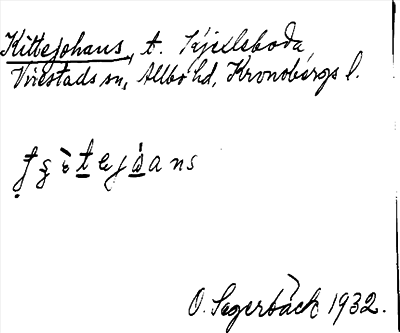 Kittejohans, t. Sjielsboda,
Virestads sn, Allbo hd, Kronobergs l.
O. Sagerbäck 1932.